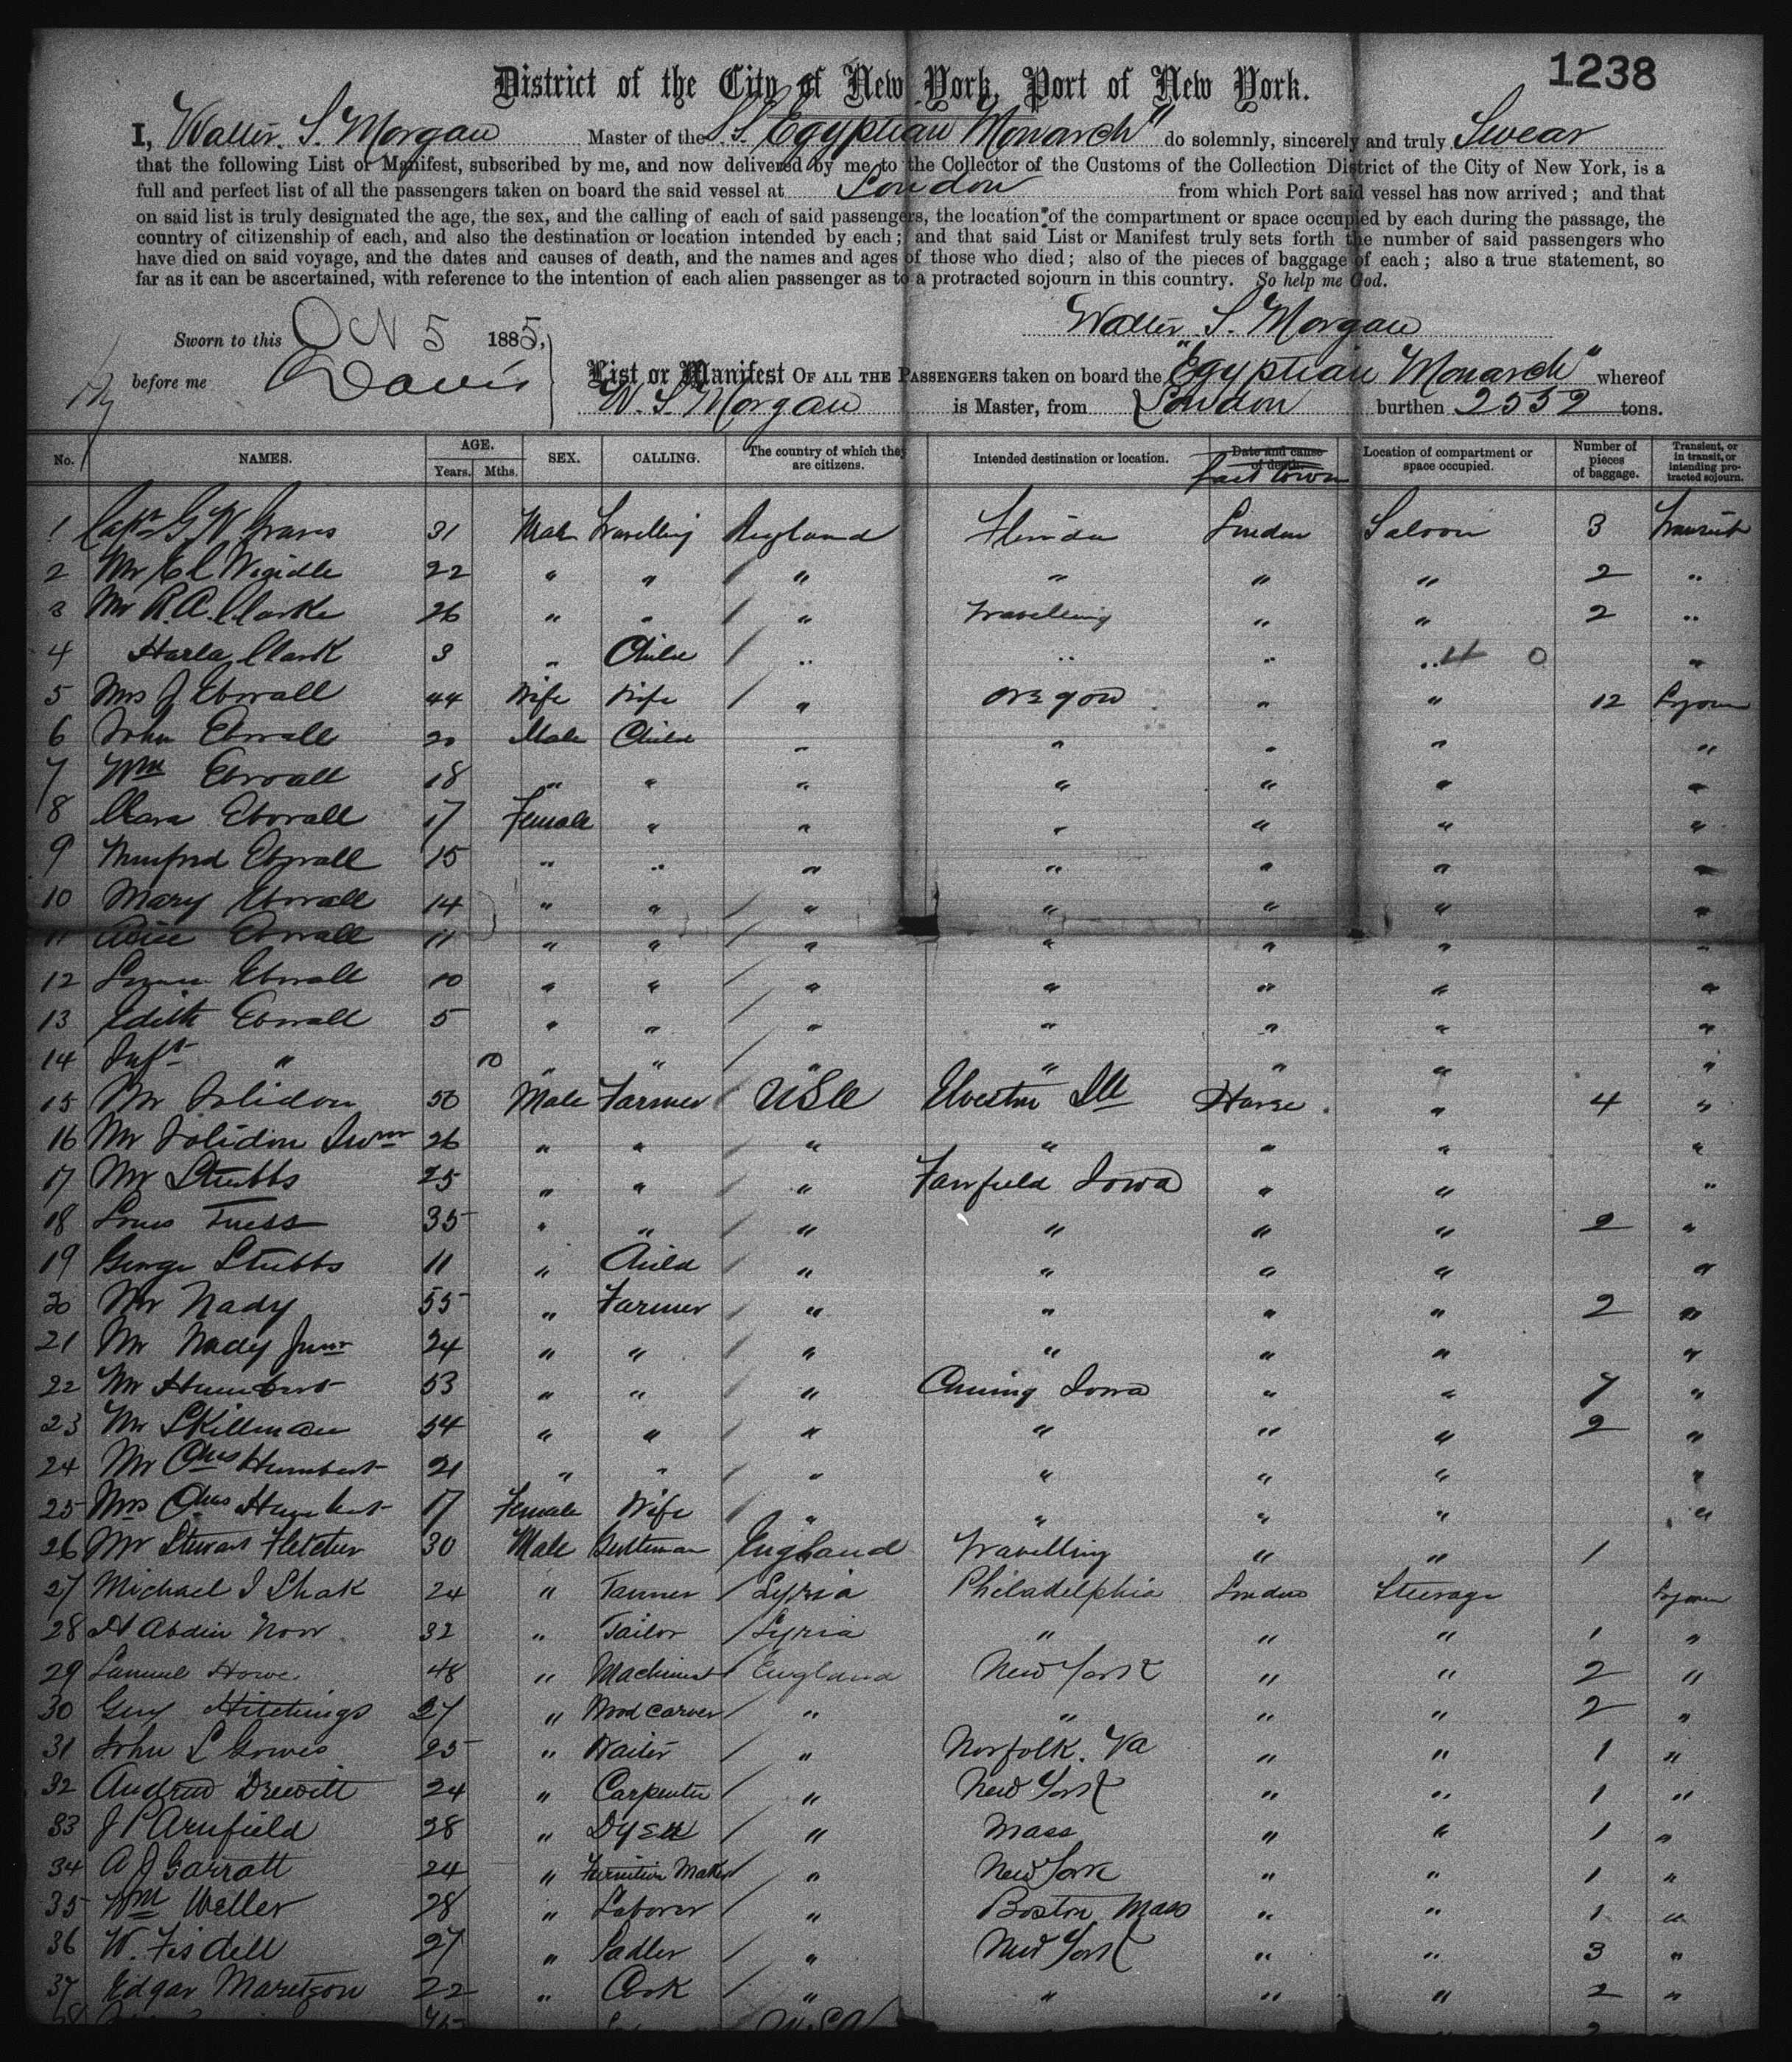 1238
District of the City of New York, Port of New York.
I, Walter. S. Morgan Master of the S.S. "Egyptian Monarch" do solemnly, sincerely and truly Swear
that the following List or Manifest, subscribed by me, and now delivered by me to the Collector of the Customs of the Collection District of the City of New York, is a
full and perfect list of all the passengers taken on board the said vessel at London from which Port said vessel has now arrived; and that
on said list is truly designated the age, the sex, and the calling of each of said passengers, the location of the compartment or space occupied by each during the passage, the
country of citizenship of each, and also the destination or location intended by each; and that said List or Manifest truly sets forth the number of said passengers who
have died on said voyage, and the dates and causes of death, and the names and ages of those who died; also of the pieces of baggage of each; also a true statement, so
far as it can be ascertained, with reference to the intention of each alien passenger as to a protracted sojourn in this country. So help me God.
Walter S. Morgan
Sworn to this 5 1885,
before me Davis
List or Manifest OF ALL THE PASSENGERS taken on board the "Egyptian Monarch" whereof
W. S. Morgan is Master, from London burthen 2552 tons.
No. NAMES. AGE. Years. Mths. SEX. CALLING. The country of which they are citizens. Intended destination or location. Date and cause of death. Location of compartment or space occupied. Number of pieces of baggage. Transient, or in transit, or intending protracted sojourn.
1 Capt G W Graves 31 Male Travelling England Florida London Saloon 3 Transit
2 Mr 22 " " " " " " 2 "
3 Mr R. A. Clarke 26 " " " Travelling " " 2 "
4 Clark 3 " Child " " " " "
5 Mrs J Eborall 44 Wife Wife " Oregon " " 12 Sojourn
6 John Eborall 20 Male Child " " " " "
7 Wm Eborall 18 " " " " " " "
8 Clara Eborall 17 Female " " " " " "
9 Eborall 15 " " " " " " "
10 Mary Eborall 14 " " " " " " "
11 Alice Eborall 11 " " " " " " "
12 Eborall 10 " " " " " " "
13 Edith Eborall 5 " " " " " " "
14 Inft " 10 " " " " " " "
15 Mr Solidon 50 Male Farmer USA Ill Havre " 4 "
16 Mr Solidon Junr 26 " " " " " " "
17 Mr Stubbs 25 " " " Fairfield Iowa " " "
18 Louis 35 " " " " " " 2 "
19 George Stubbs 11 " Child " " " " "
20 Mr Nady 55 " Farmer " " " " 2 "
21 Mr Nady Junr 24 " " " " " " "
22 Mr Humbert 53 " " " Iowa " " 7 "
23 Mr Skillman 54 " " " " " " 2 "
24 Mr Chas Humbert 21 " " " " " " "
25 Mrs Chas Humbert 17 Female Wife " " " " "
26 Mr Stewart Fletcher 30 Male Gentleman England Travelling " " 1
27 Michael I Shak 24 " Tanner Syria Philadelphia London Steerage Sojourn
28 Abdin Nour 32 " Tailor Syria " " " 1 "
29 Samuel Howe 48 " Machinist England New York " " 2 "
30 Guy Hitchings 27 " Wood carver " " " " 2 "
31 John L Gowes 25 " Waiter " Norfolk. Va " " 1 "
32 Andrew Drewitt 24 " Carpenter " New York " " 1 "
33 J P Arnfield 28 " Dyer " Mass " " 1 "
34 A J Garratt 24 " Furniture Maker " New York " " 1 "
35 Wm Weller 28 " Laborer " Boston Mass " " 1 "
36 W. Fisdell 27 " Sadler " New York " " 3 "
37 Edgar Maretson 22 " Cook " " " " 2 "